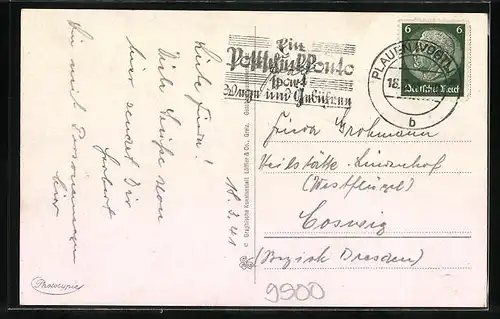 Ein
Postscheckkonto
spart
Wege und Gebühren
PLAUEN (VOGTL)
18.
b
6 6
Deutsches Reich
Liebe Frieda!
Viele Grüße von
hier sendet Dir
Herbert
Bin mit Personenwagen
hier
18.3.41
© Graphische Kunstanstalt Löffler & Co., Greiz.
Frieda Grohmann
Heilstätte Lindenhof
(Westflügel)
Coswig
(Bezirk Dresden)
Phototypie
9900